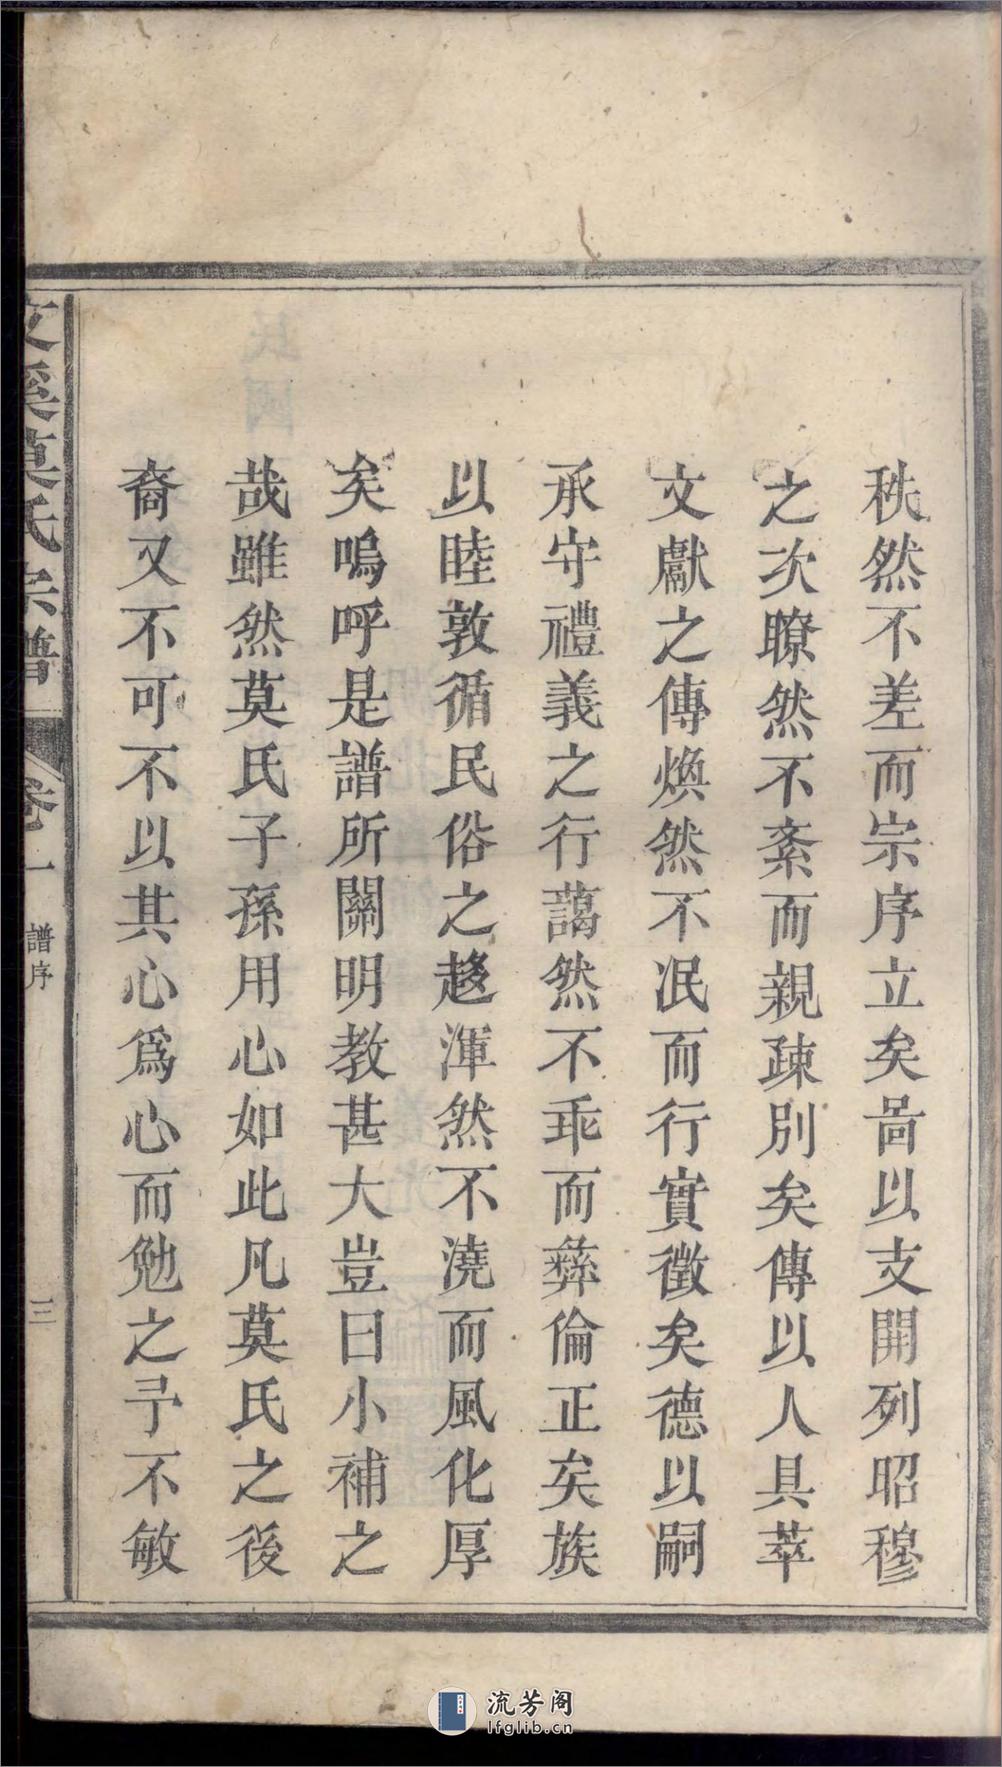 秩然不差而宗序立矣啚以支開列昭穆
之次瞭然不紊而親疎別矣傳以人具萃
文獻之傳煥然不泯而行實徵矣德以嗣
承守禮義之行藹然不乖而彝倫正矣族
以睦敦循民俗之趍渾然不澆而風化厚
矣嗚呼是譜所關明教甚大豈曰小補之
哉雖然莫氏子孫用心如此凡莫氏之後
裔又不可不以其心爲心而勉之予不敏
文溪莫氏宗譜
卷一
譜序
三
流芳阁
lfglib.cn